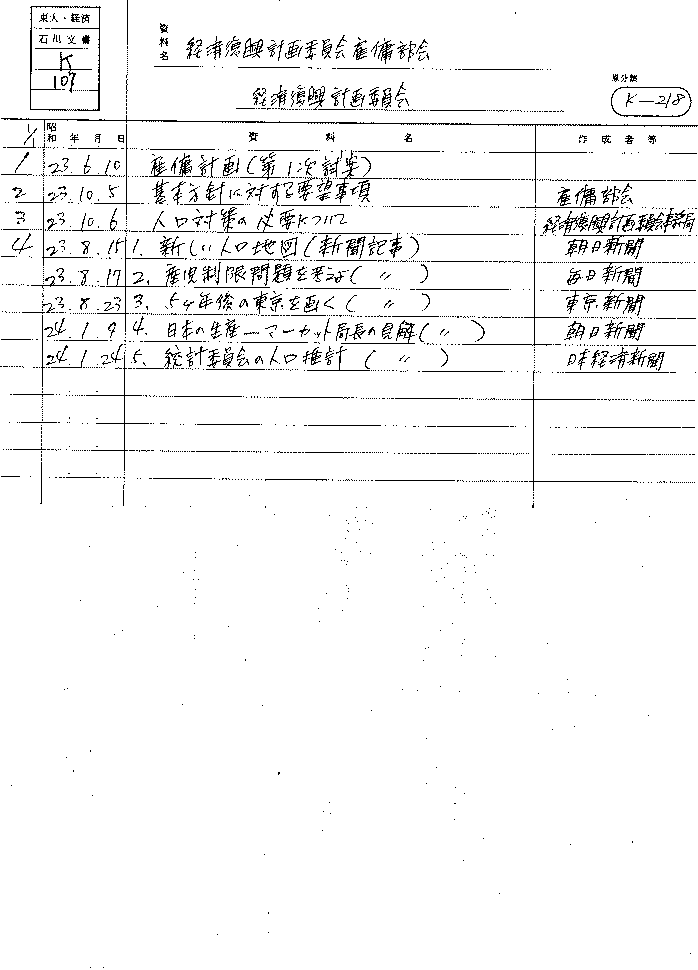 東大・経済
石川文書
K
107
資料名 経済復興計画委員会雇傭部会
経済復興計画委員会
原分類
K-218
1/1 昭和 年 月 日 資 料 名 作 成 者 等
1 23.6.10 雇傭計画(第1次試案)
2 23.10.5 基本方針に対する要望事項 雇傭部会
3 23.10.6 人口対策の必要について 経済復興計画委員会事務局
4 23.8.15 1. 新しい人口地図(新聞記事) 朝日新聞
23.8.17 2. 産児制限問題を思ふ(〃) 毎日新聞
23.8.23 3. 五ヶ年後の東京を画く(〃) 東京新聞
24.1.9 4. 日本の生産―マーカット局長の見解(〃) 朝日新聞
24.1.24 5. 統計委員会の人口推計(〃) 日本経済新聞